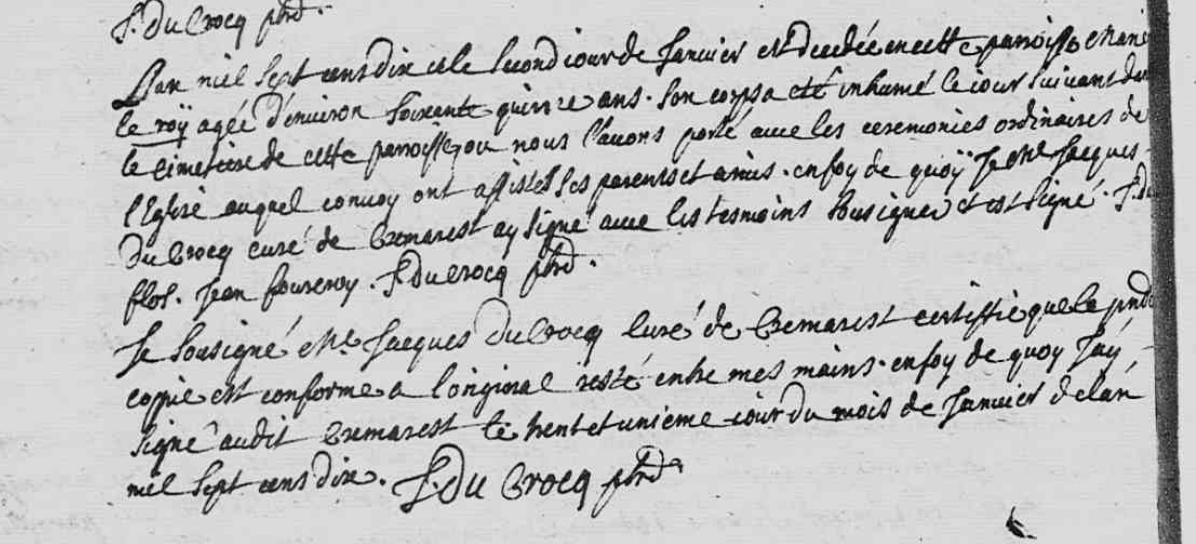 J. Du Crocq pbre.
L'an mil sept cens dix et le second iour de Januier est decedée en cette parroisse
le roÿ agée d'enuiron soixante quinze ans. Son corps a eté inhumé le iour suiuant
le cimetiere de cette parroisse ou nous l'auons porté auec les ceremonies ordinaires de
l'Eglise auquel conuoy ont assistes ses parents et amis. en foy de quoÿ Je Me Jacques
du Crocq curé de Cremarest ay signé auec les tesmoins sousignes et est signé. J. du
flos. Jean fourcroy. J. Du Crocq pbre.
Je sousigné Me Jacques Du Crocq curé de Cremarest certiffie que la pnte
coppie est conforme a l'original resté entre mes mains. en foy de quoy J'aÿ
signé audit Cremarest le trent et unieme iour du mois de Januier de l'an
mil sept cens dix. J. Du Crocq pbre